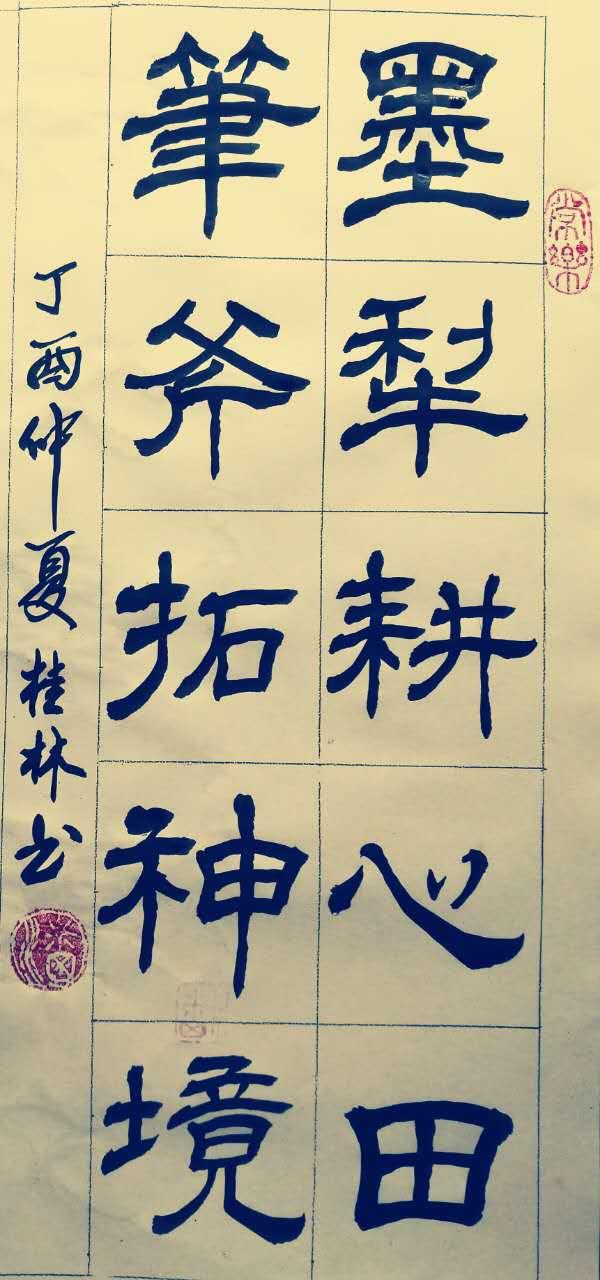 墨犁耕心田
筆斧拓神境
丁酉仲夏桂林书
常樂